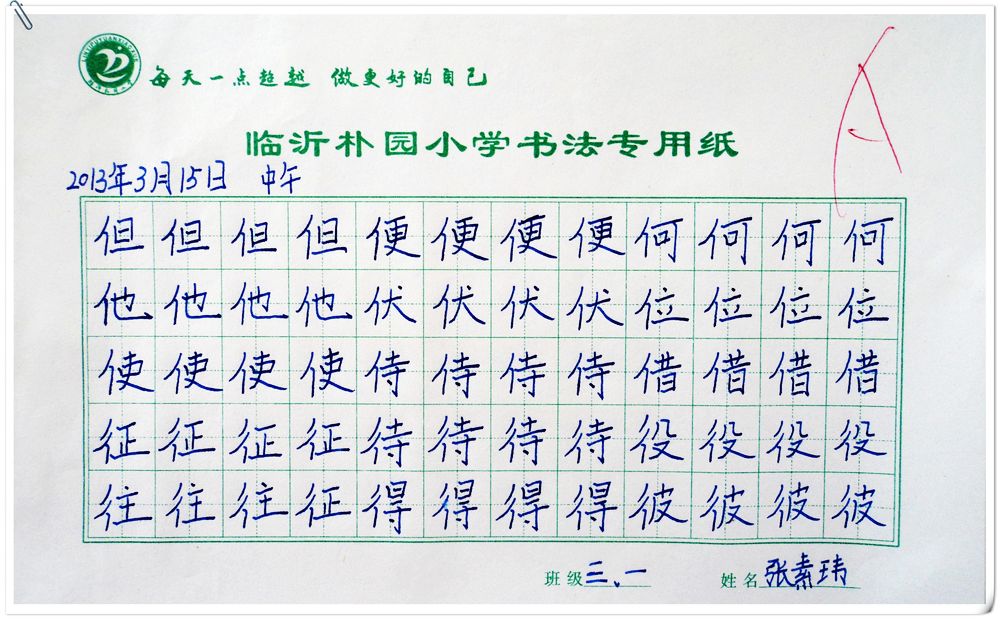 每天一点超越 做更好的自己
A
临沂朴园小学书法专用纸
2013年3月15日 中午
但但但但便便便便何何何何
他他他他伏伏伏伏位位位位
使使使使侍侍侍侍借借借借
征征征征待待待待役役役役
往往往征得得得得彼彼彼彼
班级三、一 姓名张素玮